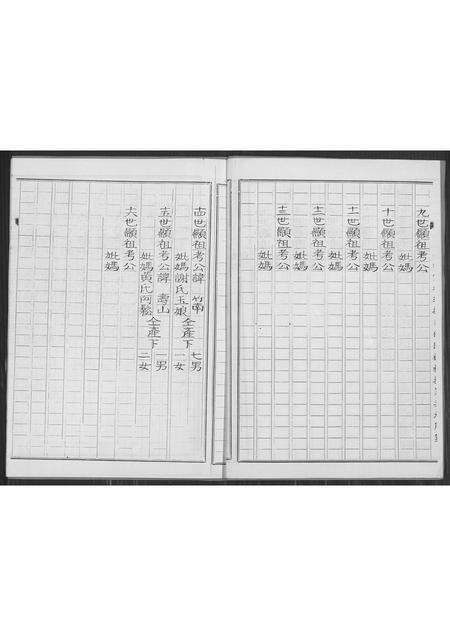 九世顯祖考公
妣媽
十世顯祖考公
妣媽
十一世顯祖考公
妣媽
十二世顯祖考公
妣媽
十三世顯祖考公
妣媽
十四世顯祖考公諱 竹南
妣媽謝氏玉娘 仝產下 七男 一女
十五世顯祖考公諱 壽山
妣媽黃氏阿 仝產下 一男 二女
十六世顯祖考公
妣媽